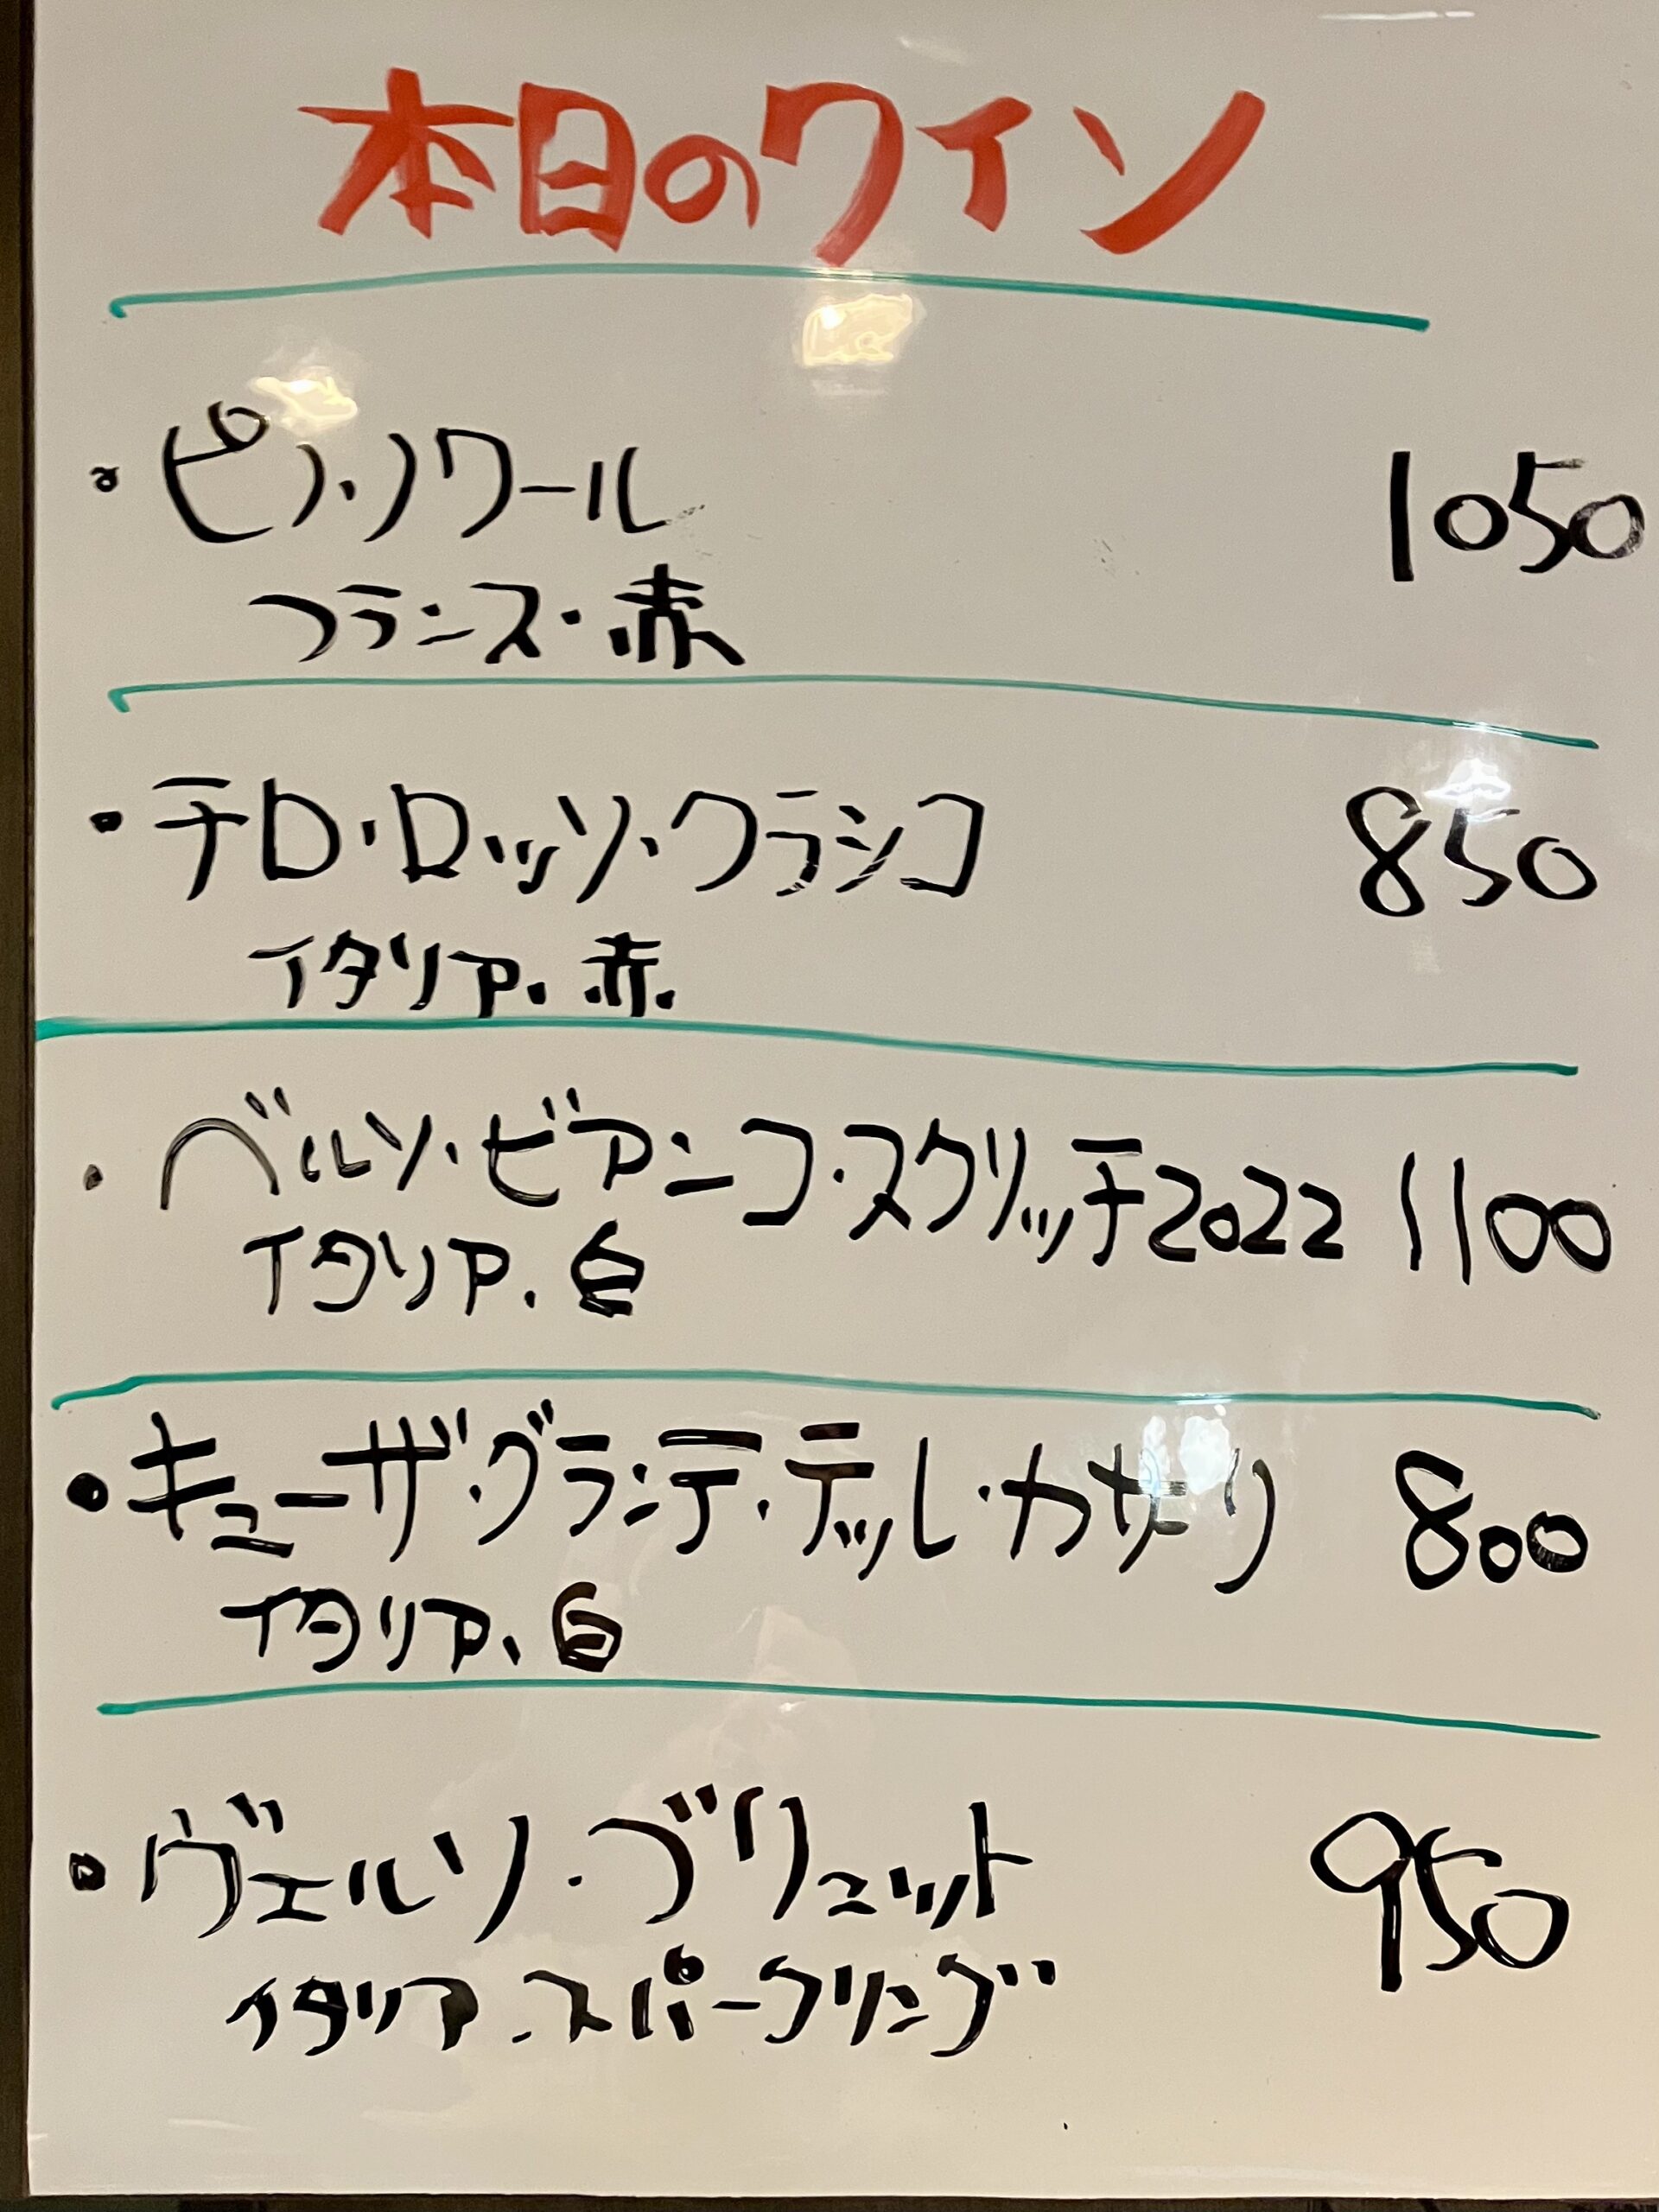 本日のワイン
・ピノ・ノワール 1050
フランス・赤
・テロ・ロッソ・クラシコ 850
イタリア・赤
・ベルソ・ビアンコ・スクリッチ2022 1100
イタリア・白
・キューザ・グランデ・デッレ・カザーリ 800
イタリア・白
・ヴェルソ・ブリュット 950
イタリア・スパークリング